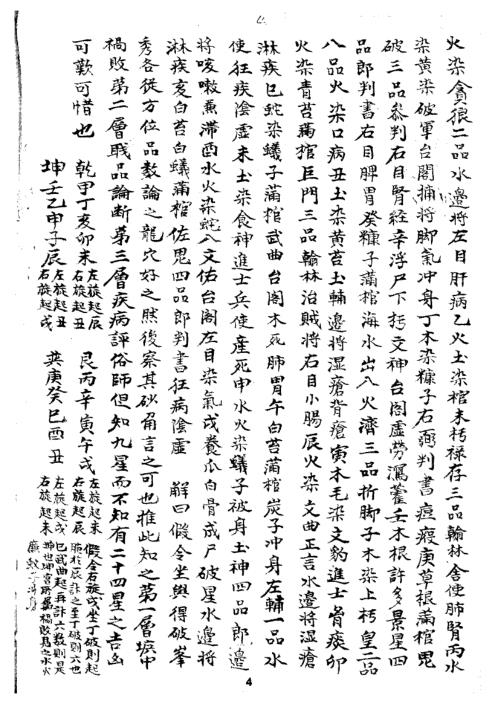 火染貪狼二品水邊將左目肝病乙火土染棺未朽祿存三品翰林舍使肺腎丙水
染黃染破軍台閣捕將脚氣冲身丁木染糠子右弼判書痘瘕庚草根滿棺鬼
破三品叅判右目腎經辛浮尸下朽文神台閣虛勞瀉藿壬木根許多景星四
品郎判書右目脾胃癸糠子滿棺海水出入火濟三品折脚子木染上朽皇二品
八品火染口病丑土染黃苔土輔邊將湿瘡背瘡寅木毛染文豹進士骨痰卯
火染青苔滿棺巨門三品翰林治賊將右目小腸辰火染文曲正言水邊將湿瘡
淋疾巳蛇染蟻子滿棺武曲台閣木死肺胃午白苔滿棺炭子冲身左輔一品水
使狂疾陰虛未土染食神進士兵使産死申水火染蟻子被身土神四品郎邊
將咳嗽熏滯酉水火染蛇八文佑台閣左目染氣戌養瓜白骨成尸破星水邊將
淋疾亥白苔白蟻滿棺佐鬼四品郎判書狂病陰虛 解曰假令坐與得破峯
秀各從方位品數論之龍穴好之然後察其砂角言之可也推此知之第一層塡中
禍敗第二層職品論斷第三層疾病評俗師但知九星而不知有二十四星之吉凶
可歎可惜也 乾甲丁亥卯未 左旋起辰
右旋起丑
艮丙辛寅午戌 左旋起未
右旋起辰
坤壬乙申子辰 左旋起丑
右旋起戌
巽庚癸巳酉丑 左旋起戌
右旋起未
假令右旋戌坐丁破則起
巳武曲起再計六數則是
4